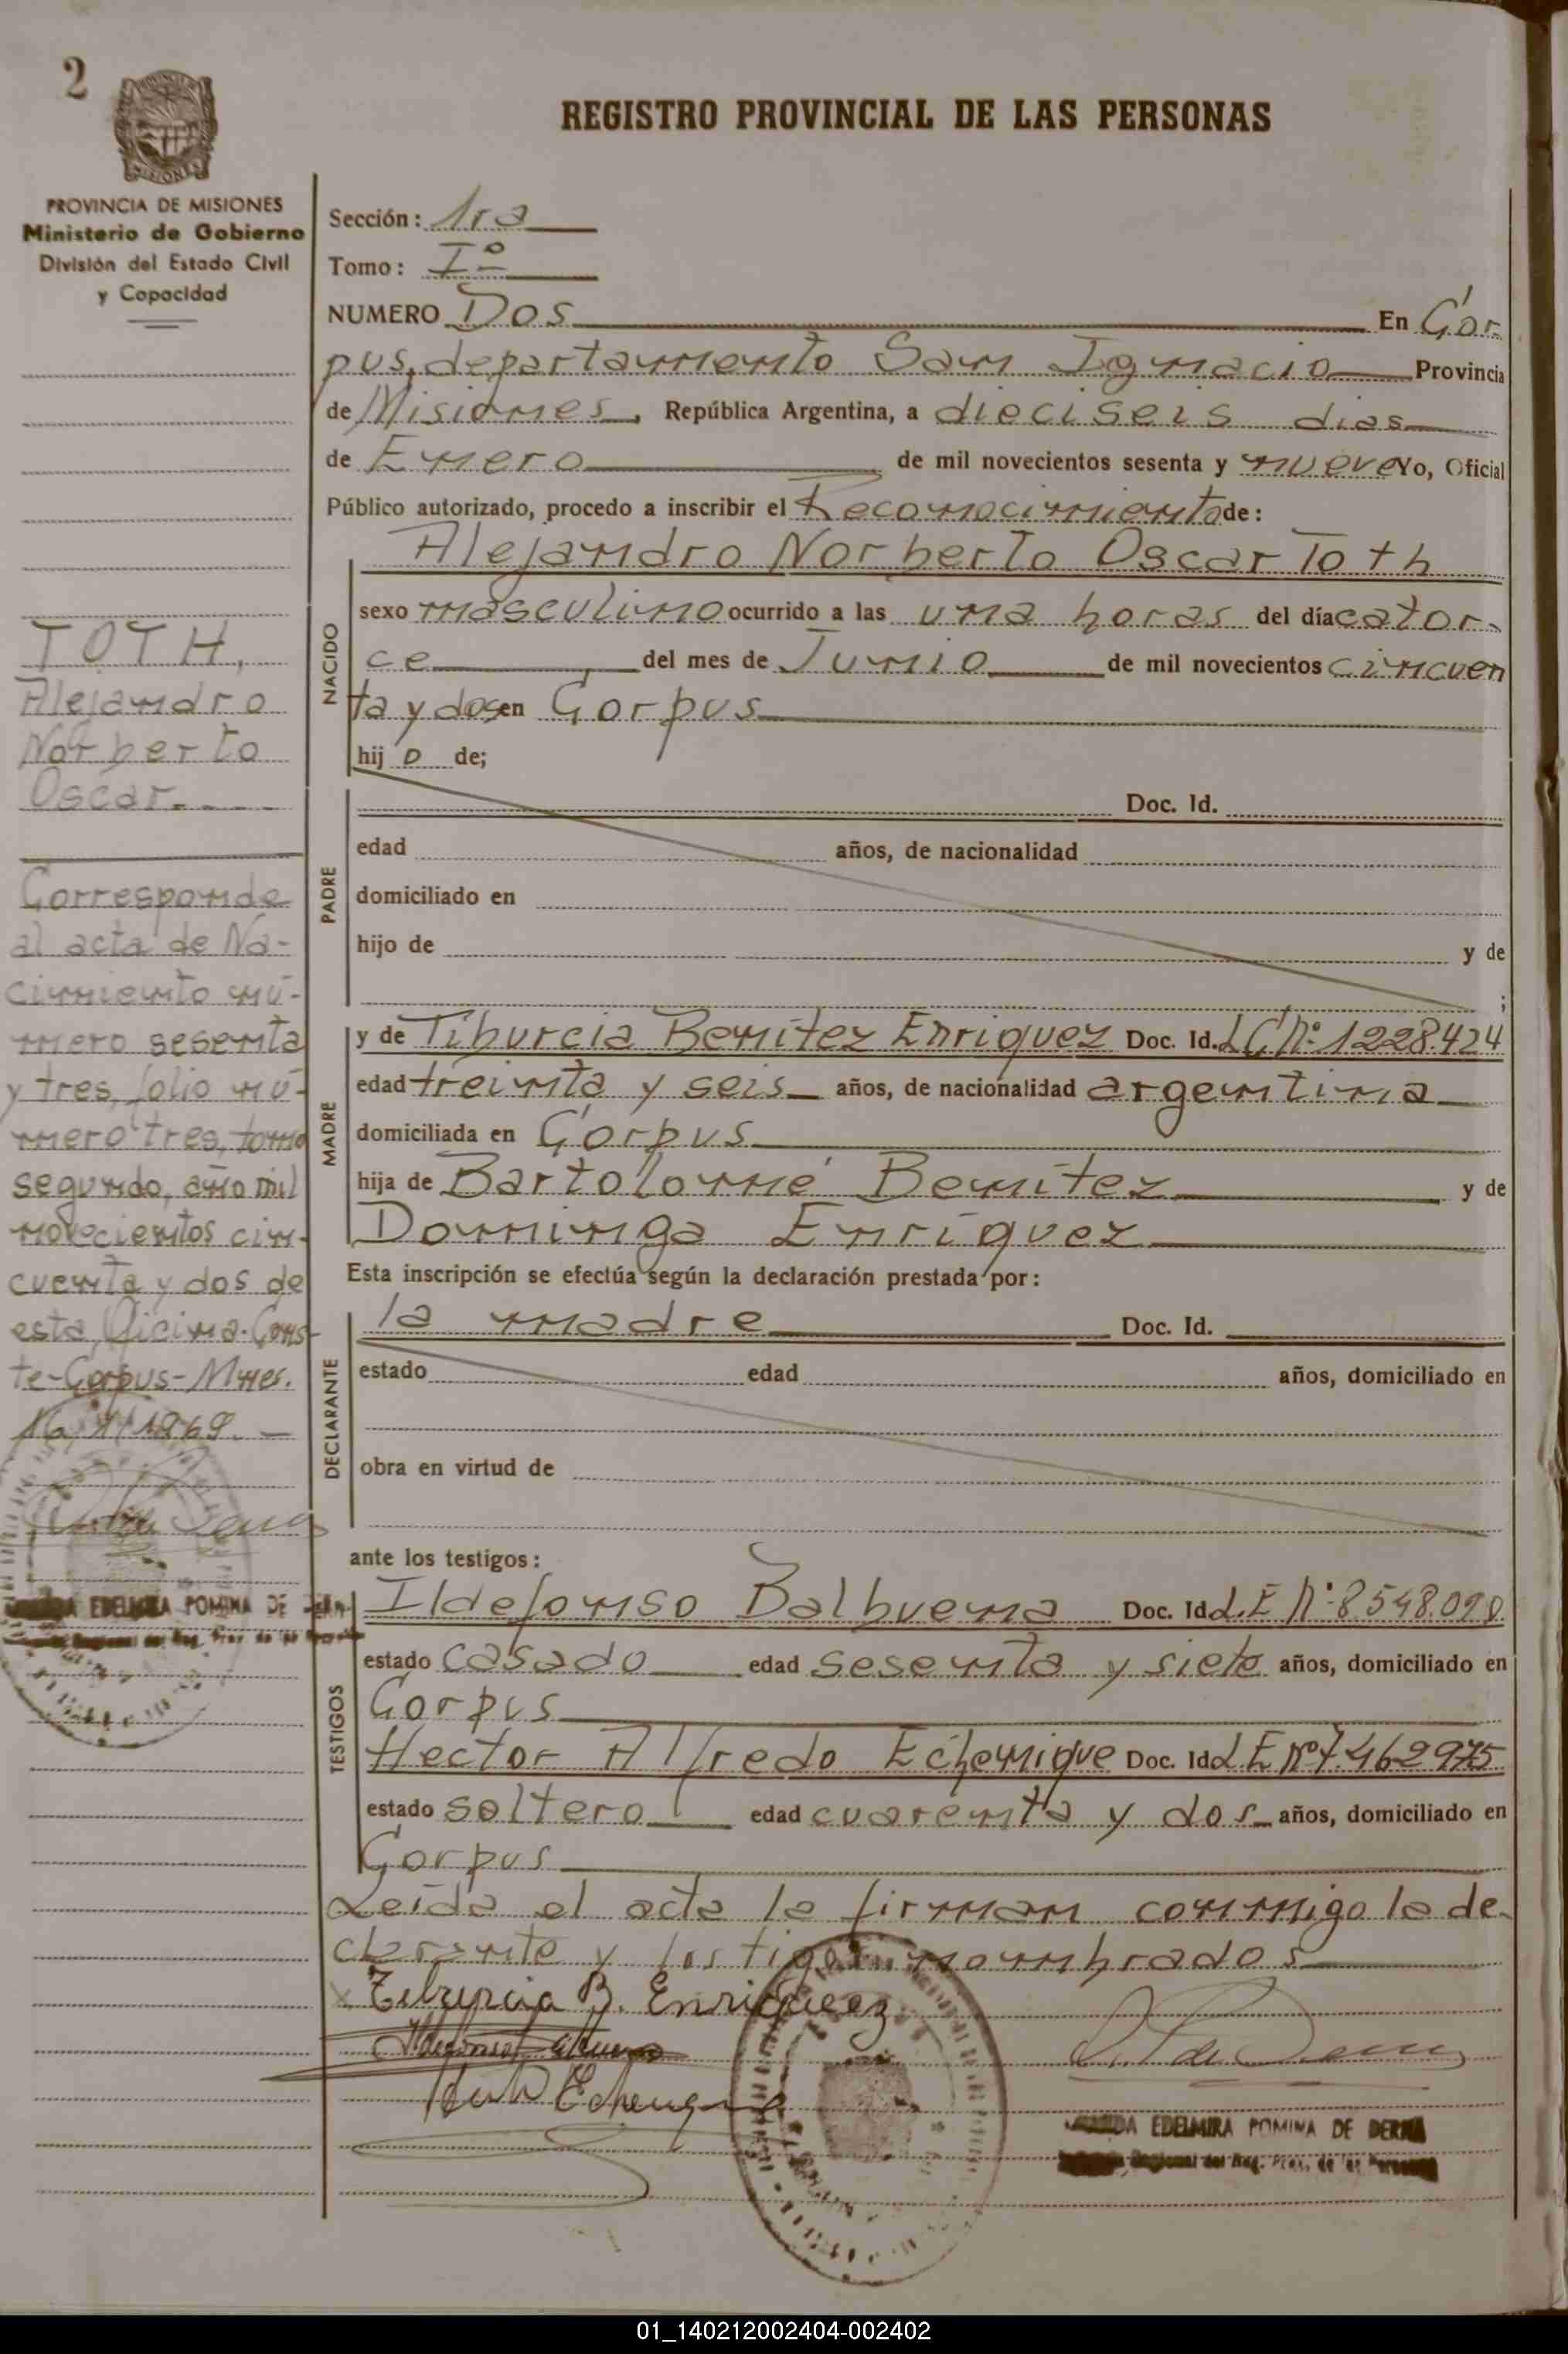 2
REGISTRO PROVINCIAL DE LAS PERSONAS
MISIONES
PROVINCIA DE MISIONES
Ministerio de Gobierno
División del Estado Civil
y Capacidad
Sección: 1ra
Tomo: Iº
NUMERO Dos En Cor-
pus, departamento San Ignacio Provincia
de Misiones, República Argentina, a dieciseis dias
de Enero de mil novecientos sesenta y nueve Yo, Oficial
Público autorizado, procedo a inscribir el Reconocimiento de:
NACIDO
Alejandro Norberto Oscar Toth
sexo masculino ocurrido a las una horas del día cator-
ce del mes de Junio de mil novecientos cincuen
ta y dos en Corpus
hij o de;
PADRE
Doc. Id.
edad años, de nacionalidad
domiciliado en
hijo de y de
;
MADRE
y de Tiburcia Benítez Enriquez Doc. Id. LC Nº 1228.424
edad treinta y seis años, de nacionalidad argentina
domiciliada en Corpus
hija de Bartolomé Benítez y de
Dominga Enríquez
Esta inscripción se efectúa según la declaración prestada por:
DECLARANTE
la madre Doc. Id.
estado edad años, domiciliado en
obra en virtud de
ante los testigos:
TESTIGOS
Ildefonso Balbuena Doc. Id L.E Nº 8548.090
estado casado edad sesenta y siete años, domiciliado en
Corpus
Hector Alfredo Echenique Doc. Id L E Nº 7.462975
estado soltero edad cuarenta y dos años, domiciliado en
Corpus
Leída el acta la firman conmigo la de-
clarante y testigos nombrados
Tiburcia B. Enriquez
EDELMIRA POMINA DE
Regional del Reg. Prov. de las Personas
TOTH,
Alejandro
Norberto
Oscar.
Corresponde
al acta de Na-
cimiento nú-
mero sesenta
y tres, folio nú-
mero tres, tomo
segundo, año mil
novecientos cin-
cuenta y dos de
esta Oficina. Cons-
te-Corpus-Mnes.
16/1/1969.-
EDELMIRA POMINA DE
01_140212002404-002402